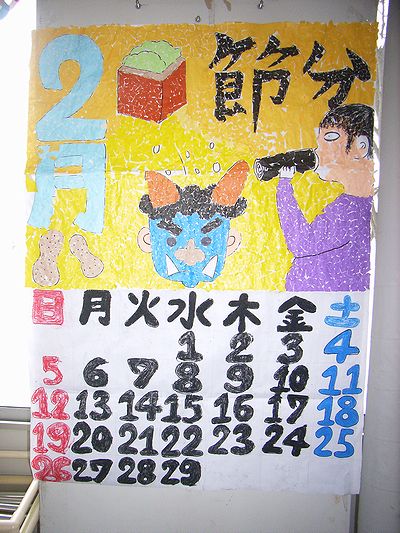 2月
節分
日 月 火 水 木 金 土
1 2 3 4
5 6 7 8 9 10 11
12 13 14 15 16 17 18
19 20 21 22 23 24 25
26 27 28 29